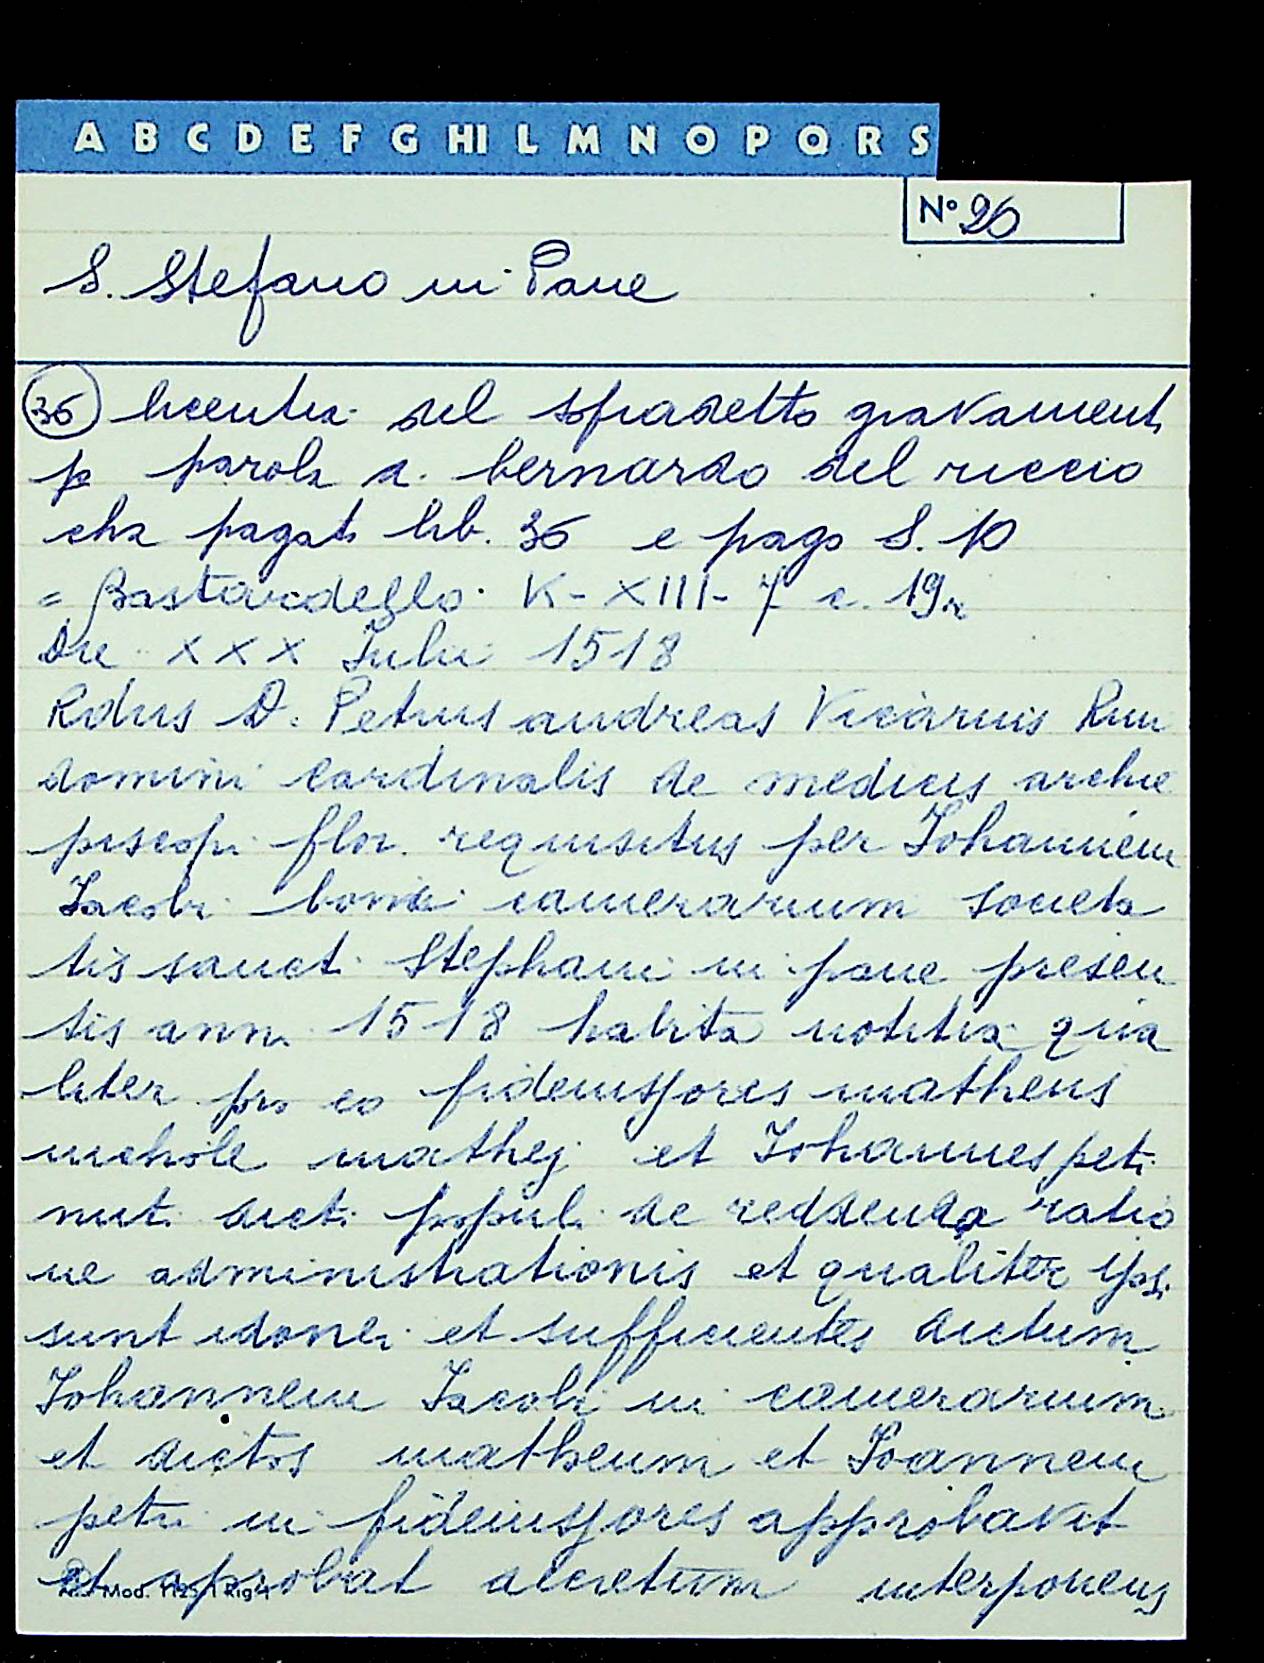 A B C D E F G HI L M N O P Q R S
N° 26
S. Stefano in Pane
36 licentia del sopradetto gravament
p parola d. bernardo del riccio
cha pagat lib. 36 e pago S. 10
= Bastardello K-XIII-7 c. 19r
Die XXX Julii 1518
Rdus D. Petrus andreas Vicarius Rmi
domini cardinalis de medicis archie
piscopi flor. requisitus per Johannem
Jacobi bonii camerarium societa
tis sancti Stephani in pane presen
tis anni 1518 habita notitia qua
liter pro eo fideiussores matheus
michole mathej et Johannes petri
nuti dicti populi de reddenda ratio
ne administrationis et qualiter ipsi
sunt idonei et sufficientes dictum
Johannem Jacobi in camerarium
et dictos matheum et Joannem
petri in fideiussores approbavit
et aprobat decretum interponens
Mod. 1125/1 Rig.